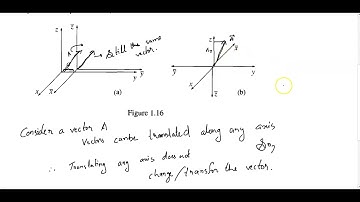 z z̄ z
A Still the same
vector.
y ȳ ȳ y
x x̄ x z̄
(a) (b)
Figure 1.16
Consider a vector A
Vectors can be translated along any axis
∴ Translating any axis does not
change/transfor the vector.